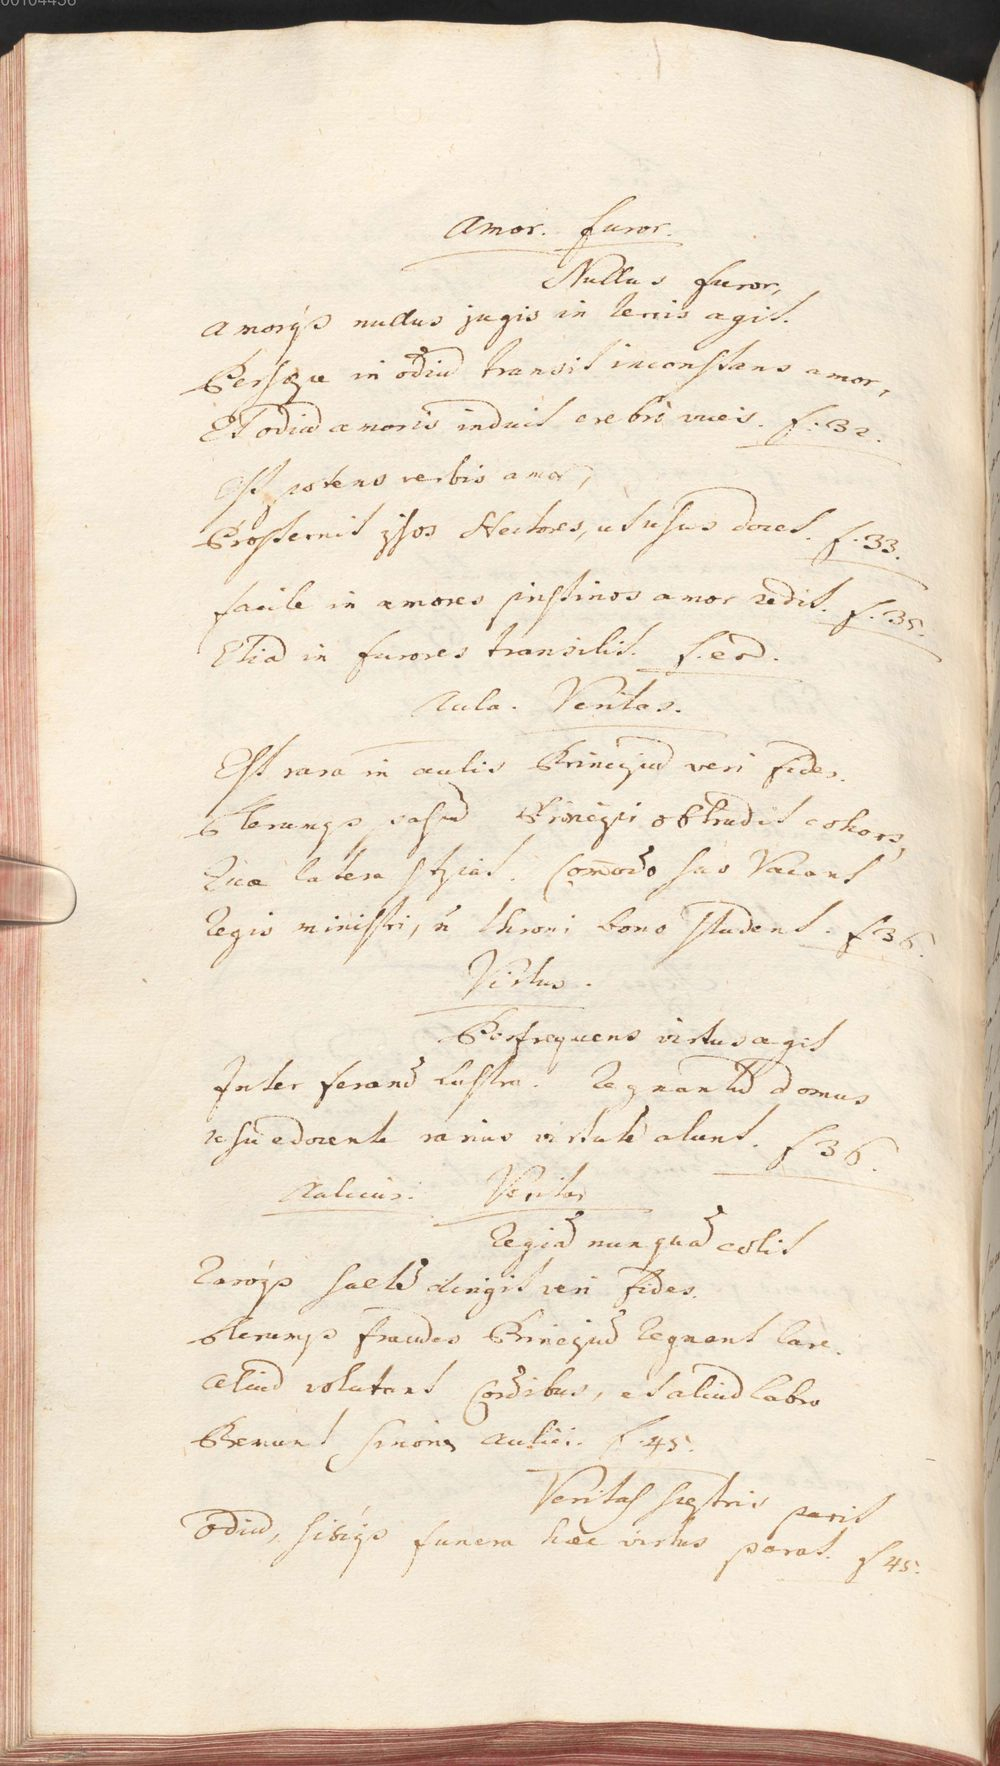 00104456
Amor. furor.
Nullus furor,
Amorq3 nullus jugis in terris agit.
Persæpe in odiũ transit inconstans amor,
Et odiũ amoris induit crebrò vices. f. 32.
Est potens verbis amor,
Prosternit ipsos Hectores, ut usus docet. f. 33.
facile in amores pristinos amor redit. f. 35.
Etiã in furores transilit. f. eod.
Aula. Veritas.
Est rara in aulis Principũ veri fides.
Plerumq3 falsũ Principi obtrudit cohors,
Quæ latera stipat. Com̃odo suo vacant
Regis ministri, ñ throni bono student. f. 36.
Virtus.
Perfrequens virtus agit
Inter ferarũ lustra. Regnantũ domus
usu edocente rarius virtutẽ alunt. f 36.
Aulicus. Veritas
Regiã nunquã colit
Raróq3 saltẽ dirigit veri fides.
Plerumq3 fraudes Principũ regnant lare.
Aliud volutant cordibus, et aliud labro
Premunt Sinones aulici. f. 45.
Veritas sceptris parit
Odiũ, sibiq3 funera hæc virtus parat. f 45.